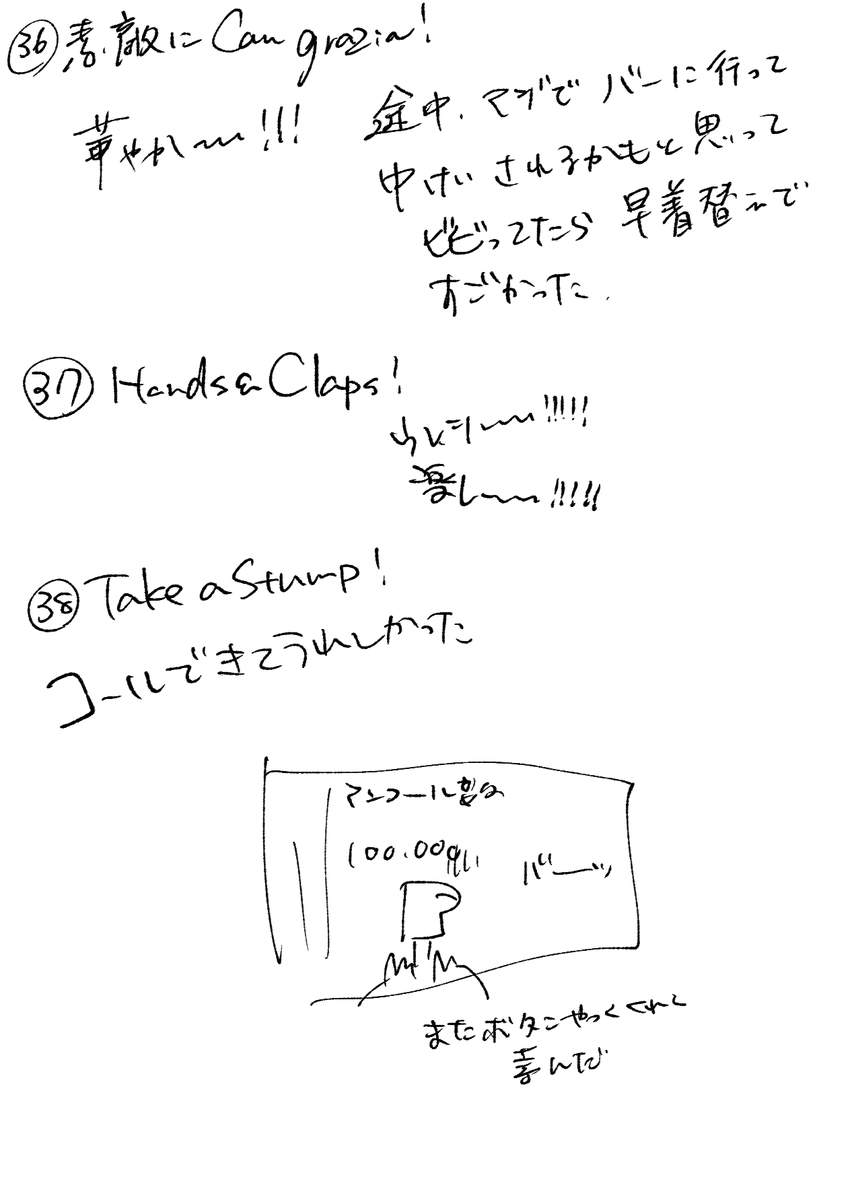 ㊱ 素敵に Con grazia!
華やか〜〜!!!
途中、マジでバーに行って
中けいされるかもと思って
ビビってたら早着替えで
すごかった.
㊲ Hands & Claps!
楽し〜〜!!!!!
㊳ Take a Stump!
コールできてうれしかった
アンコール
100.00
バーッ
またボタンやってくれて
喜んだ